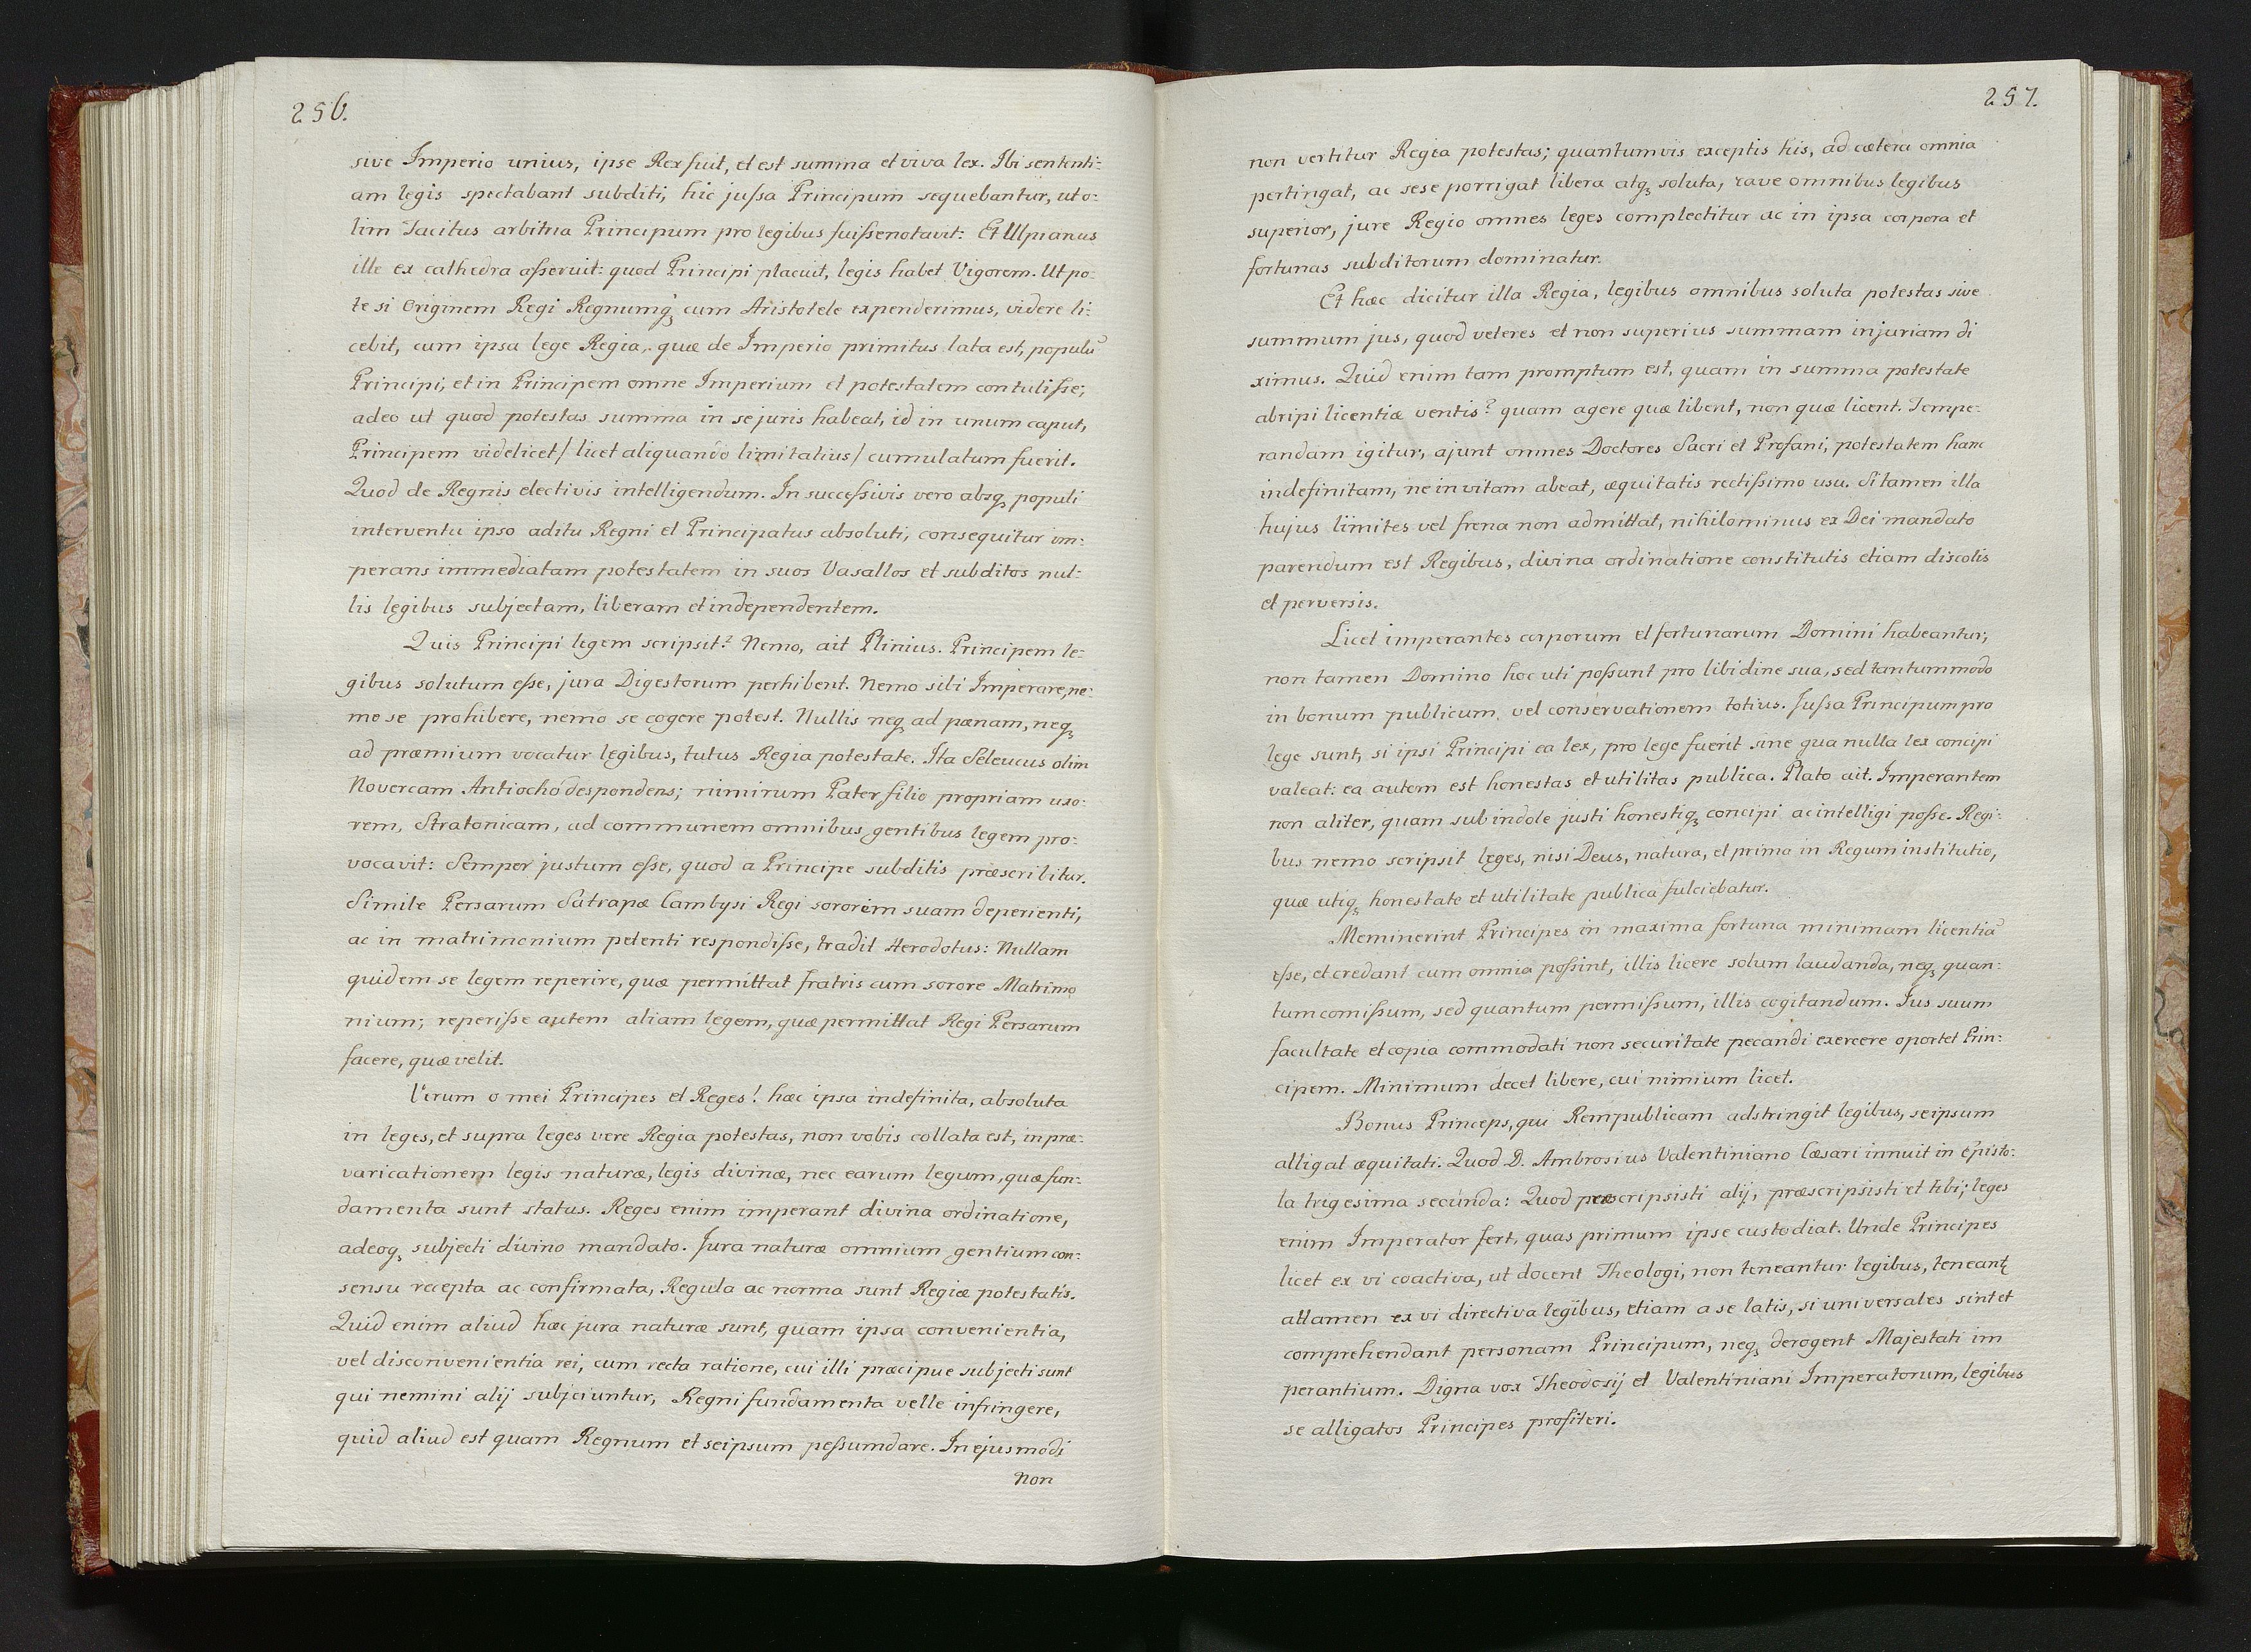 256.
sive Imperio unius, ipse Rex fuit, et est summa et viva lex. Ibi sententi-
am legis spectabant subditi, hic jussa Principum sequebantur, ut o-
lim Tacitus arbitria Principum pro legibus fuisse notavit: Et Ulpianus
ille ex cathedra asseruit: quod Principi placuit, legis habet Vigorem. Ut po-
te si Originem Regi Regnumq₃ cum Aristotele expenderimus, videre li-
cebit, cum ipsa lege Regia, quæ de Imperio primitus lata est, populū
Principi, et in Principem omne Imperium et potestatem contulisse;
adeo ut quod potestas summa in se juris habeat, id in unum caput,
Principem videlicet / licet aliquando limitatius / cumulatum fuerit.
Quod de Regnis electivis intelligendum. In successivis vero absq₃ populi
interventu ipso aditu Regni et Principatus absoluti, consequitur im-
perans immediatam potestatem in suos Vasallos et subditos nul-
lis legibus subjectam, liberam et independentem.
Quis Principi legem scripsit? Nemo, ait Plinius. Principem le-
gibus solutum esse, jura Digestorum perhibent. Nemo sibi Imperare, ne-
mo se prohibere, nemo se cogere potest. Nullis neq₃ ad pœnam, neq₃
ad præmium vocatur legibus, tutus Regia potestate. Ita Seleucus olim
Novercam Antiocho despondens; nimirum Pater filio propriam uxo-
rem, Stratonicam, ad communem omnibus gentibus legem pro-
vocavit: Semper justum esse, quod a Principe subditis præscribitur.
Simile Persarum Satrapæ Cambysi Regi sororem suam deperienti,
ac in matrimonium petenti respondisse, tradit Herodotus: Nullam
quidem se legem reperire, quæ permittat fratris cum sorore Matrimo
nium; reperisse autem aliam legem, quæ permittat Regi Persarum
facere, quæ velit.
Virum o mei Principes et Reges! hæc ipsa indefinita, absoluta
in leges, et supra leges vere Regia potestas, non vobis collata est, in præ-
varicationem legis naturæ, legis divinæ, nec earum legum, quæ fun-
damenta sunt status. Reges enim imperant divina ordinatione,
adeoq₃ subjecti divino mandato. Jura naturæ omnium gentium con-
sensu recepta ac confirmata, Regula ac norma sunt Regiæ potestatis.
Quid enim aliud hæc jura naturæ sunt, quam ipsa convenientia,
vel disconvenientia rei, cum recta ratione, cui illi præcipue subjecti sunt
qui nemini alij subjciuntur, Regni fundamenta velle infringere,
quid aliud est quam Regnum et seipsum pessumdare. In ejusmodi
non
257.
non vertitur Regia potestas; quantumvis exceptis his, ad cætera omnia
pertingat, ac sese porrigat libera atq₃ soluta, cave omnibus legibus
superior, jure Regio omnes leges complectitur ac in ipsa corpora et
fortunas subditorum dominatur.
Et hæc dicitur illa Regia, legibus omnibus soluta potestas sive
summum jus, quod veteres et non superius summam injuriam di
ximus. Quid enim tam promptum est, quam in summa potestate
abripi licentiæ ventis? quam agere quæ libent, non quæ licent. Tempe-
randam igitur, ajunt omnes Doctores Sacri et Profani, potestatem hanc
indefinitam, ne in vitam abeat, æquitatis rectissimo usu. Si tamen illa
hujus limites vel frena non admittat, nihilominus ex Dei mandato
parendum est Regibus, divina ordinatione constitutis etiam discolis
et perversis.
Licet imperantes corporum et fortunarum Domini habeantur,
non tamen Domino hoc uti possunt pro libidine sua, sed tantummodo
in bonum publicum, vel conservationem totius. Jussa Principum pro
lege sunt, si ipsi Principi ea lex, pro lege fuerit sine qua nulla lex concipi
valeat: ea autem est honestas et utilitas publica. Plato ait. Imperantem
non aliter, quam sub indole justi honestiq₃ concipi ac intelligi posse. Regi-
bus nemo scripsit leges, nisi Deus, natura, et prima in Regum institutio,
quæ utiq₃ honestate et utilitate publica fulciebatur.
Meminerint Principes in maxima fortuna minimam licentiā
esse, et credant cum omnia possint, illis licere solum laudanda, neq₃ quan-
tum comissum, sed quantum permissum, illis cogitandum. Jus suum
facultate et copia commodati non securitate pecandi exercere oportet Prin-
cipem. Minimum decet libere, cui nimium licet.
Bonus Princeps, qui Rempublicam adstringit legibus, seipsum
alligat æquitati. Quod D. Ambrosius Valentiniano Cæsari innuit in Episto-
la trigesima secunda: Quod præscripsisti alij, præscripsisti et tibi; leges
enim Imperator fert, quas primum ipse custodiat. Unde Principes
licet ex vi coactiva, ut docent Theologi, non teneantur legibus, teneantꝛ
attamen ex vi directiva legibus, etiam a se latis, si universales sint et
comprehendant personam Principum, neq₃ derogent Majestati im
perantium. Digna vox Theodosij et Valentiniani Imperatorum, legibus
se alligatos Principes profiteri.